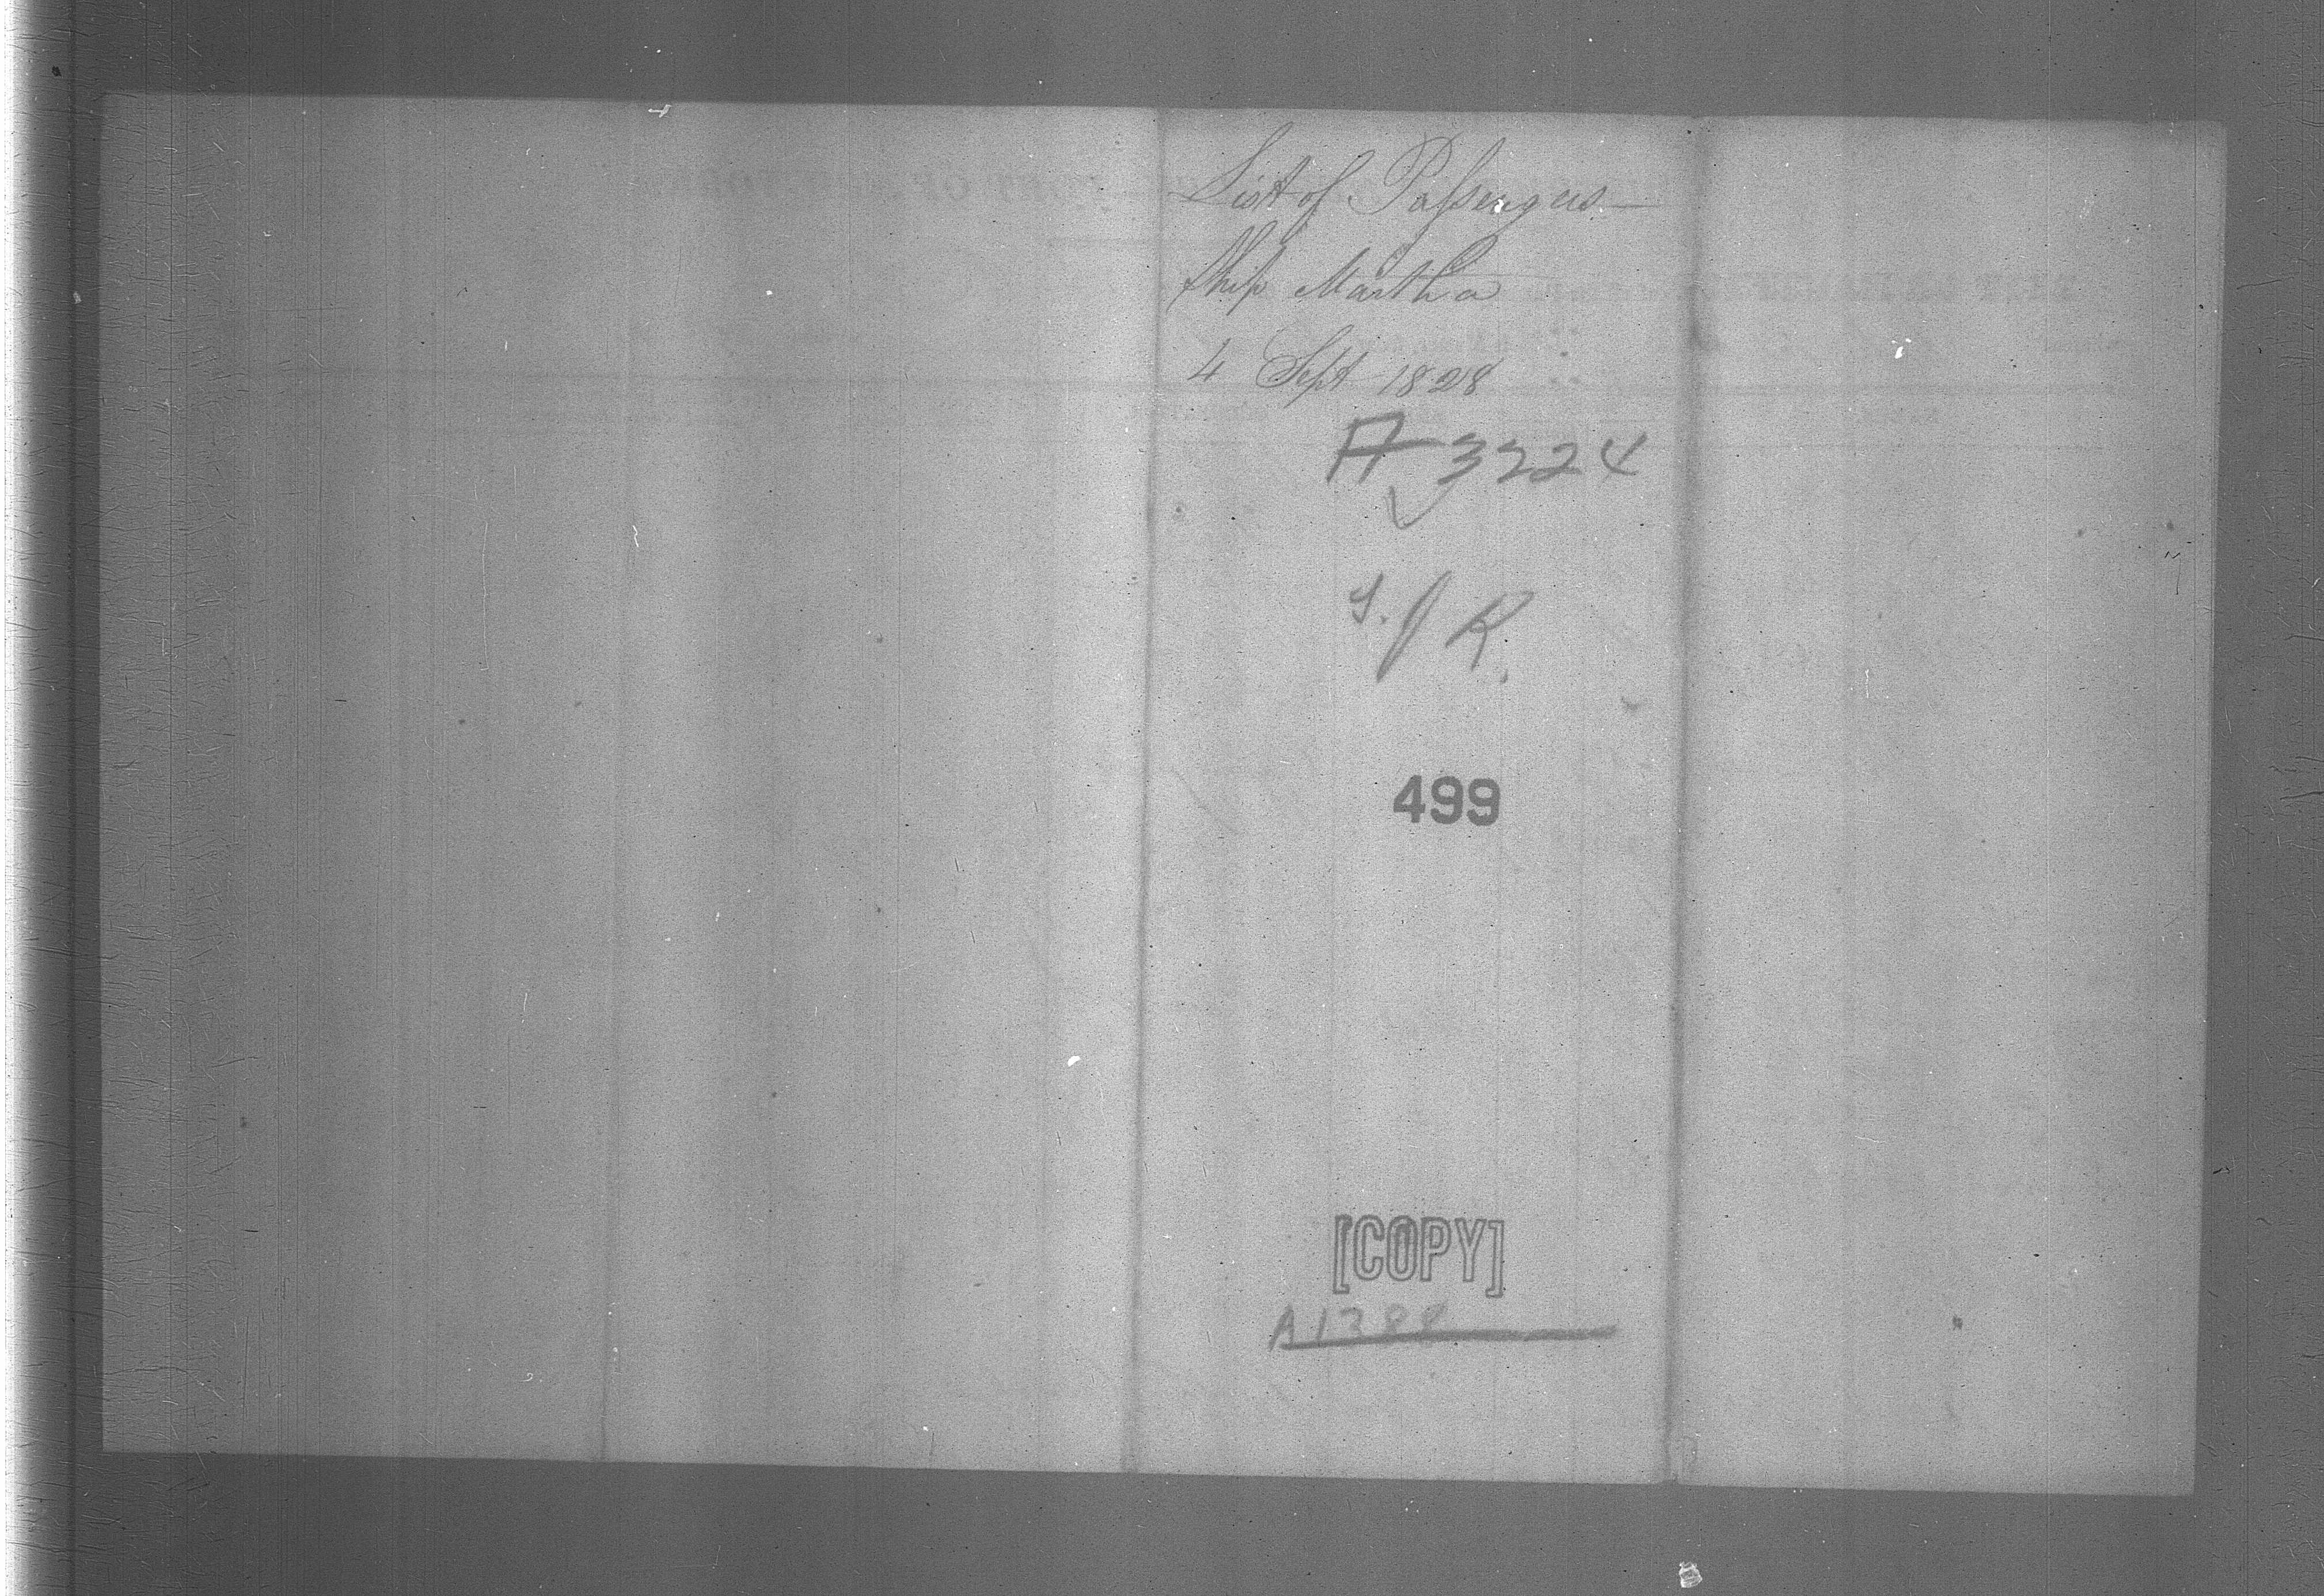 List of Passengers—
Ship Martha
4 Sept 1828
A 3224
J. R.
499
[COPY]
A1388